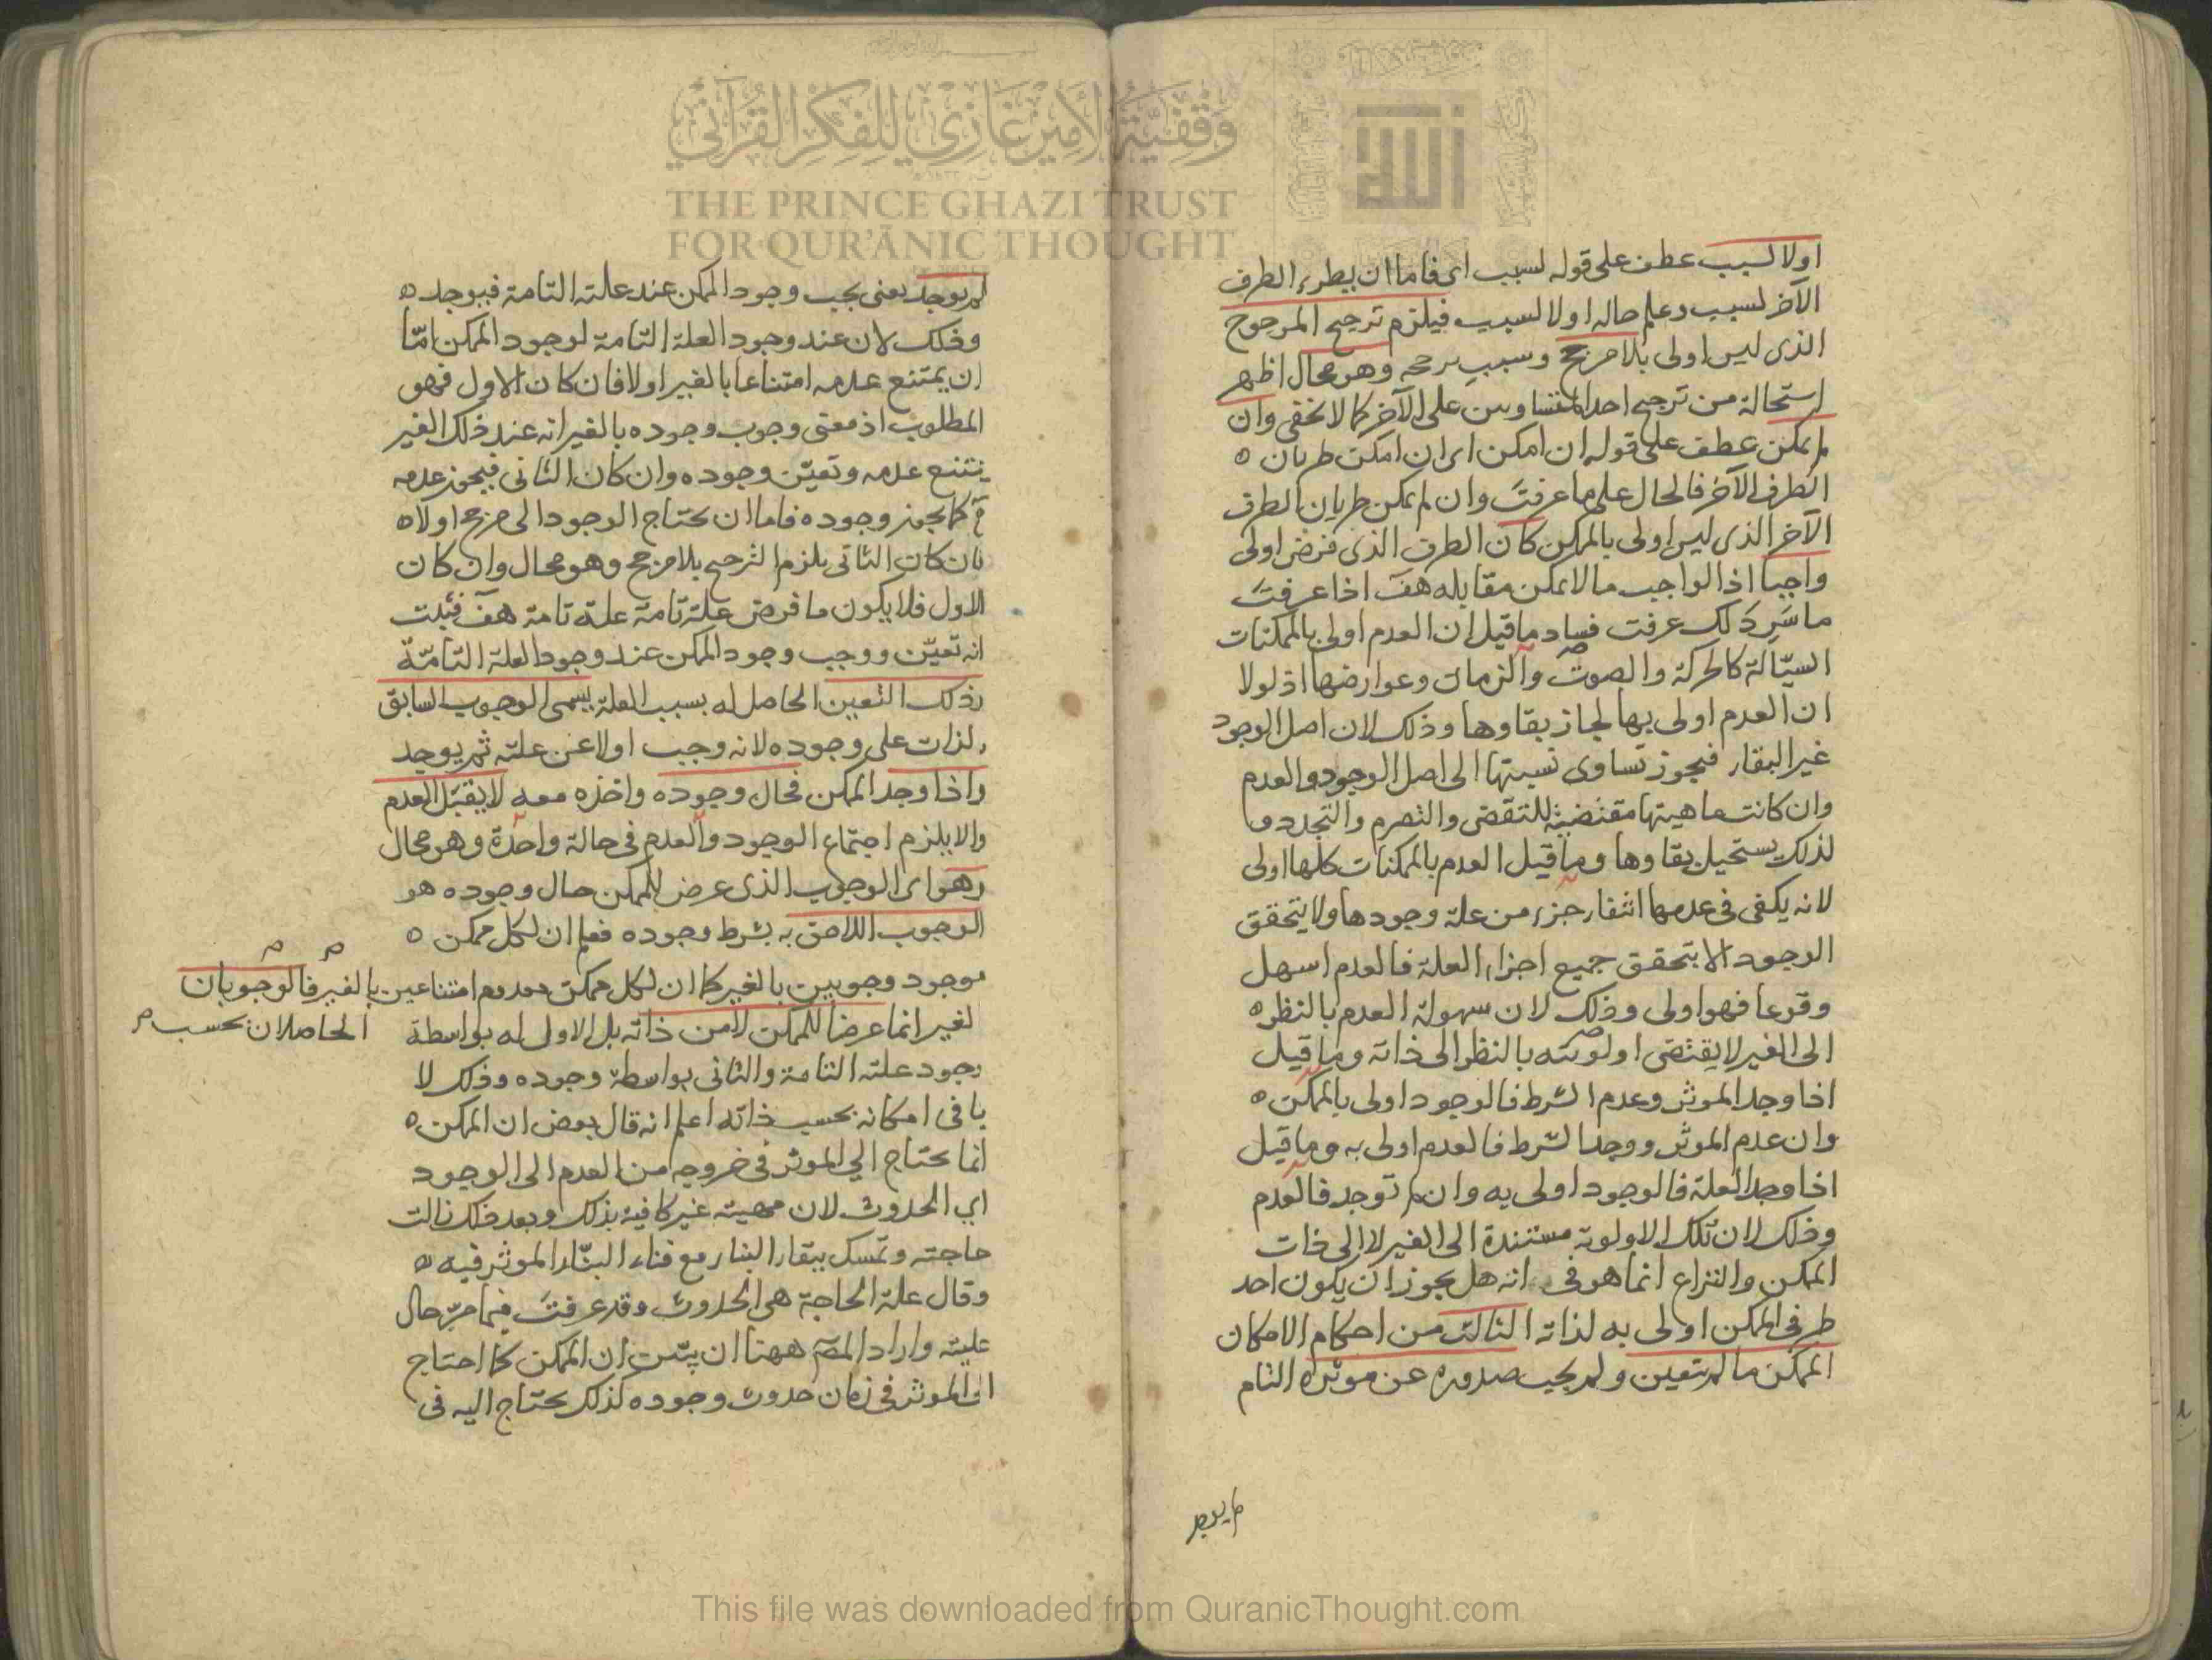 اولا لسبب عطف على قوله لسبب اى فاما ان يطرء الطرف
الآخر لسبب وعلم حاله اولا لسبب فيلزم ترجيح المرجوح
الذى ليس اولى بلا مرجح وسبب يرجحه وهو محال اظهر
استحالة من ترجيح احد المتساويين على الآخر كما لا يخفى وان
لم يمكن عطف على قوله ان امكن اى ان امكن طريان ه
الطرف الآخر فالحال على ما عرفت وان لم يمكن طريان الطرف
الآخر الذى ليس اولى بالممكن كان الطرف الذى فرض اولى
واجبا اذ الواجب ما لا يمكن مقابله هف اذا عرفت
ما سَرِد لك عرفت فساد ما قيل ان العدم اولى بالممكنات
السيّالة كالحركة والصوت والزمان وعوارضها اذ لولا
ان العدم اولى بها لجاز بقاوها وذلك لان اصل الوجود
غير البقاء فيجوز تساوى نسبتها الى اصل الوجود والعدم
وان كانت ماهيتها مقتضية للتقضى والتصرم والتجدد و
لذلك يستحيل بقاوها وما قيل العدم بالممكنات كلها اولى
لانه يكفى فى عدمها انتفاء جزء من علة وجودها ولا يتحقق
الوجود الا بتحقق جميع اجزاء العلة فالعدم اسهل
وقوعا فهو اولى وذلك لان سهولة العدم بالنظر ه
الى الغير لا يقتضى اولويته بالنظر الى ذاته وما قيل
اذا وجد الموثر وعدم الشرط فالوجود اولى بالممكن ه
وان عدم الموثر ووجد الشرط فالعدم اولى به وما قيل
اذا وجد العلة فالوجود اولى به وان لم توجد فالعدم
وذلك لان تلك الاولوية مستندة الى الغير لا الى ذات
الممكن والنزاع انما هو فى انه هل يجوز ان يكون احد
طرفى الممكن اولى به لذاته الثالث من احكام الامكان
الممكن ما لم يتعين ولم يجب صدوره عن موثره التام
لم يوجد
لم يوجد يعنى يجب وجود الممكن عند علته التامة فيوجد ه
وذلك لان عند وجود العلة التامة لوجود الممكن امّا
ان يمتنع عدمه امتناعا بالغير اولا فان كان الاول فهو
المطلوب اذ معنى وجوب وجوده بالغير انه عند ذلك الغير
يمتنع عدمه وتعيّن وجوده وان كان الثانى فيجوز عدمه
كما يجوز وجوده فاما ان يحتاج الوجود الى مرجح اولا ه
فان كان الثانى يلزم الترجيح بلا مرجح وهو محال وان كان
الاول فلا يكون ما فرض علة تامة علة تامة هف فثبت
انه تعيّن ووجب وجود الممكن عند وجود العلة التامّة
وذلك التعين الحاصل له بسبب العلة يسمى الوجوب السابق
بالذات على وجوده لانه وجب اولا عن علته ثم يوجد
واذا وجد الممكن فحال وجوده واخذه معه لا يقبل العدم
والا يلزم اجتماع الوجود والعدم فى حالة واحدة وهو محال
وهو اى الوجوب الذى عرض للممكن حال وجوده هو
الوجوب اللاحق به بشرط وجوده فعلم ان لكل ممكن ه
موجود وجوبين بالغير كما ان لكل ممكن معدوم امتناعين بالغير فالوجوبان
الحاصلان بحسب
لغير انما عرضا للممكن لا من ذاته بل الاول له بواسطة
وجود علته التامة والثانى بواسطة وجوده وذلك لا
ينافى امكانه بحسب ذاته اعلم انه قال بعض ان الممكن ه
انما يحتاج الى الموثر فى خروجه من العدم الى الوجود
اي الحدوث لان مهيته غير كافية بذلك وبعد ذلك زالت
حاجته وتمسك ببقاء البناء مع فناء البنّاء الموثر فيه ه
وقال علة الحاجة هى الحدوث وقد عرفت فيما مرّ حال
عليته واراد المصم ههنا ان يبيّن ان الممكن كما احتاج
الى الموثر فى زمان حدوث وجوده كذلك يحتاج اليه فى
وقفية الأمير غازي للفكر القرآني
THE PRINCE GHAZI TRUST
FOR QUR'ĀNIC THOUGHT
الله
This file was downloaded from QuranicThought.com